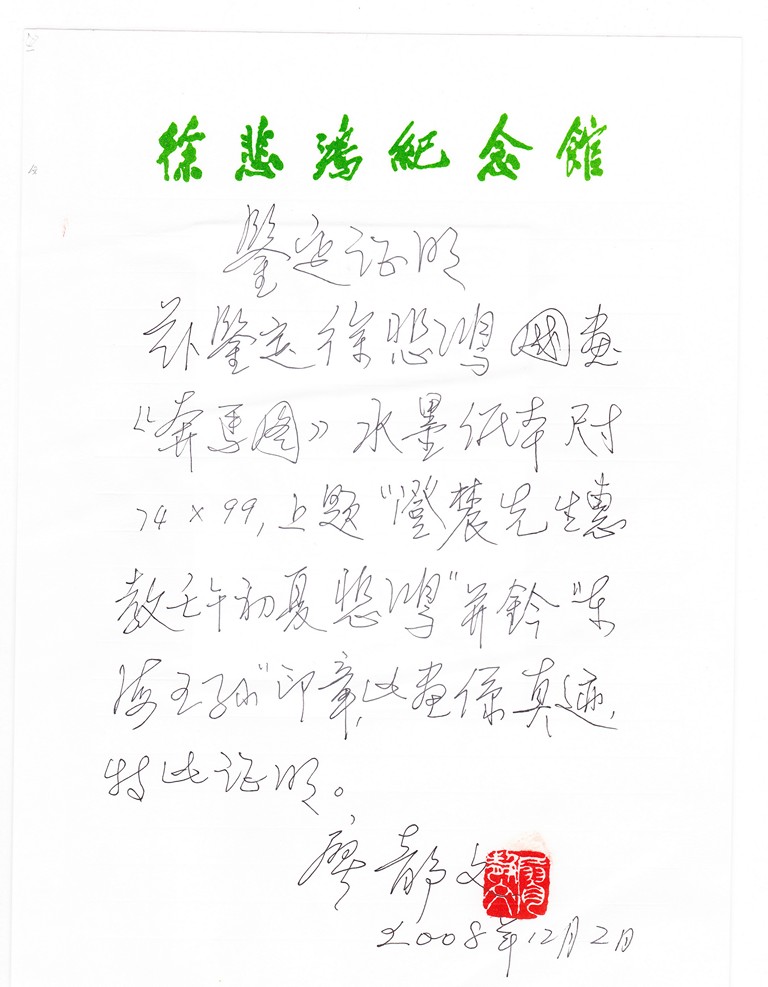 徐悲鴻紀念館
鉴定证明
兹鉴定徐悲鸿國画
《奔马图》水墨纸本尺寸
74×99，上题“澄农先生惠
教壬午初夏悲鸿”并钤“东
海王孙”印章，此画係真迹，
特此证明。
廖静文
2008年12月2日